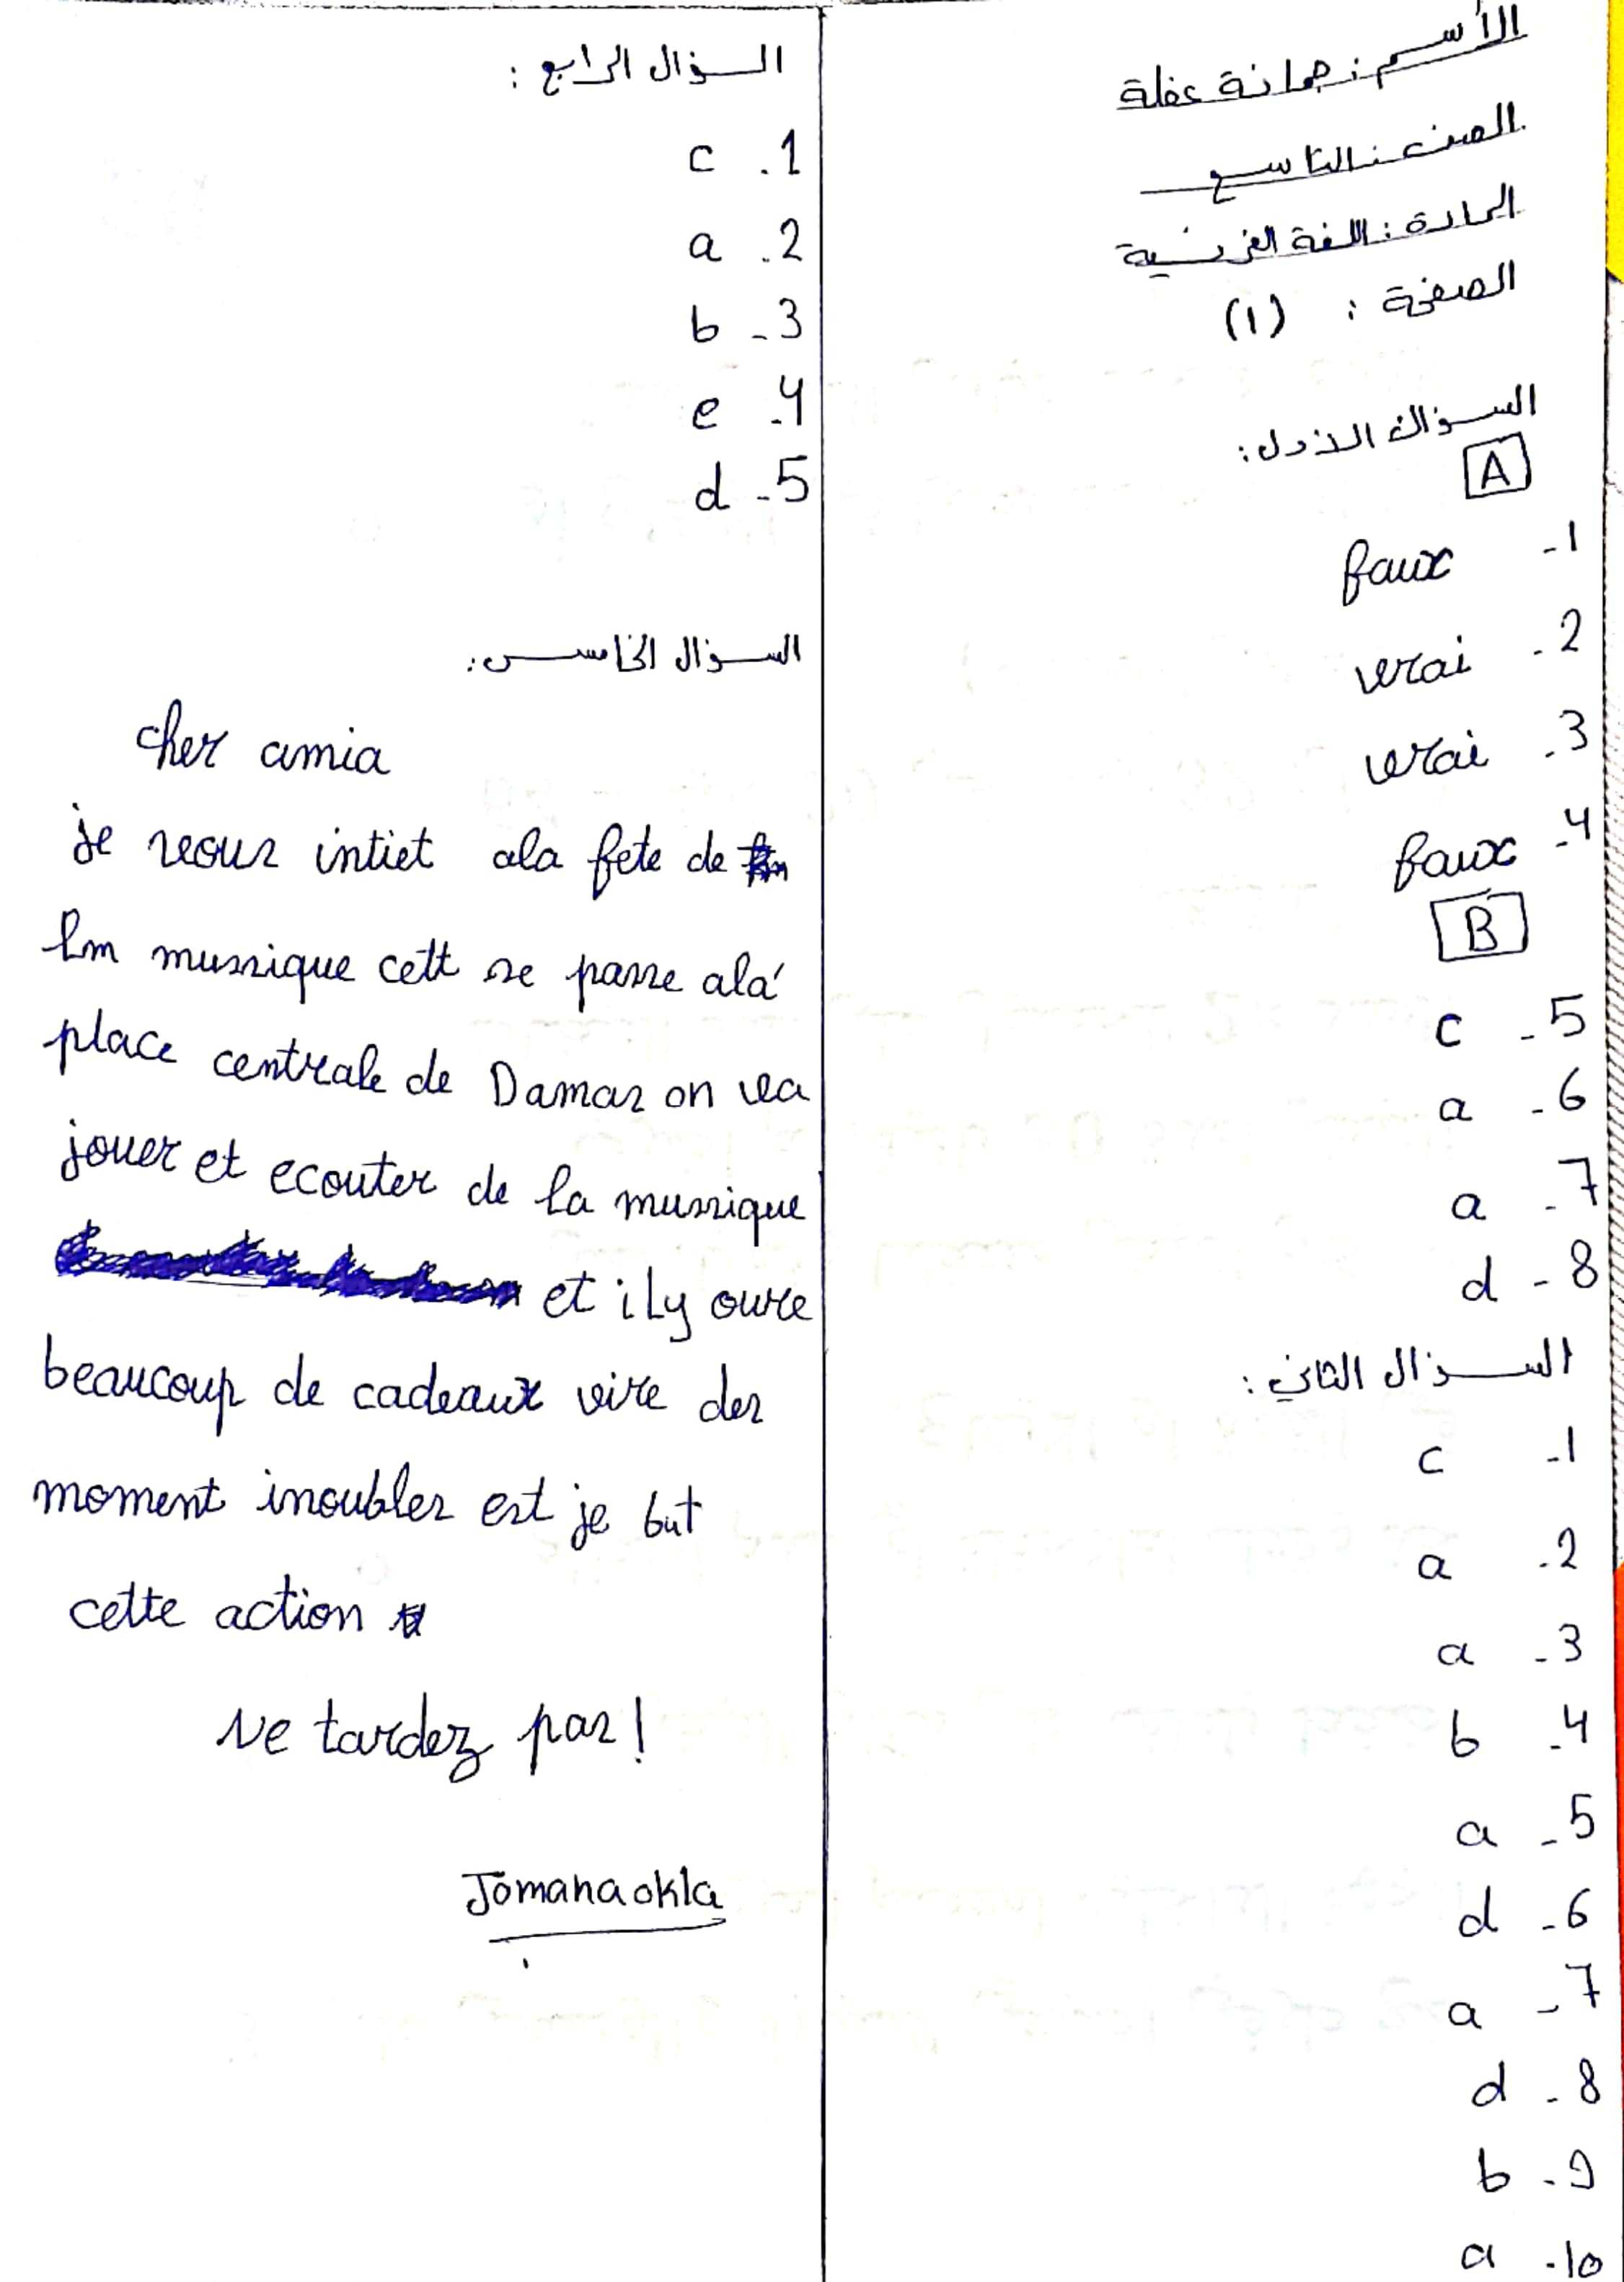 الأسم : جمانة عقلة
الصف : التاسع
المادة : اللغة الفرنسية
الصفحة : (1)
السؤال الأول:
A
1- faux
2- vrai
3- vrai
4- faux
B
5- c
6- a
7- a
8- d
السؤال الثاني :
1- c
2- a
3- a
4- b
5- a
6- d
7- a
8- d
9- b
10- a
السؤال الرابع :
1. c
2. a
3- b
4- e
5- d
السؤال الخامس:
cher amia
je vous intiet ala fete de
lm mussique cett se passe alá
place centrale de Damas on va
jouer et ecouter de la mussique
et ily ouve
beaucoup de cadeaux vive des
moment inoubles est je but
cette action
Ne tardez pas!
Jomana okla